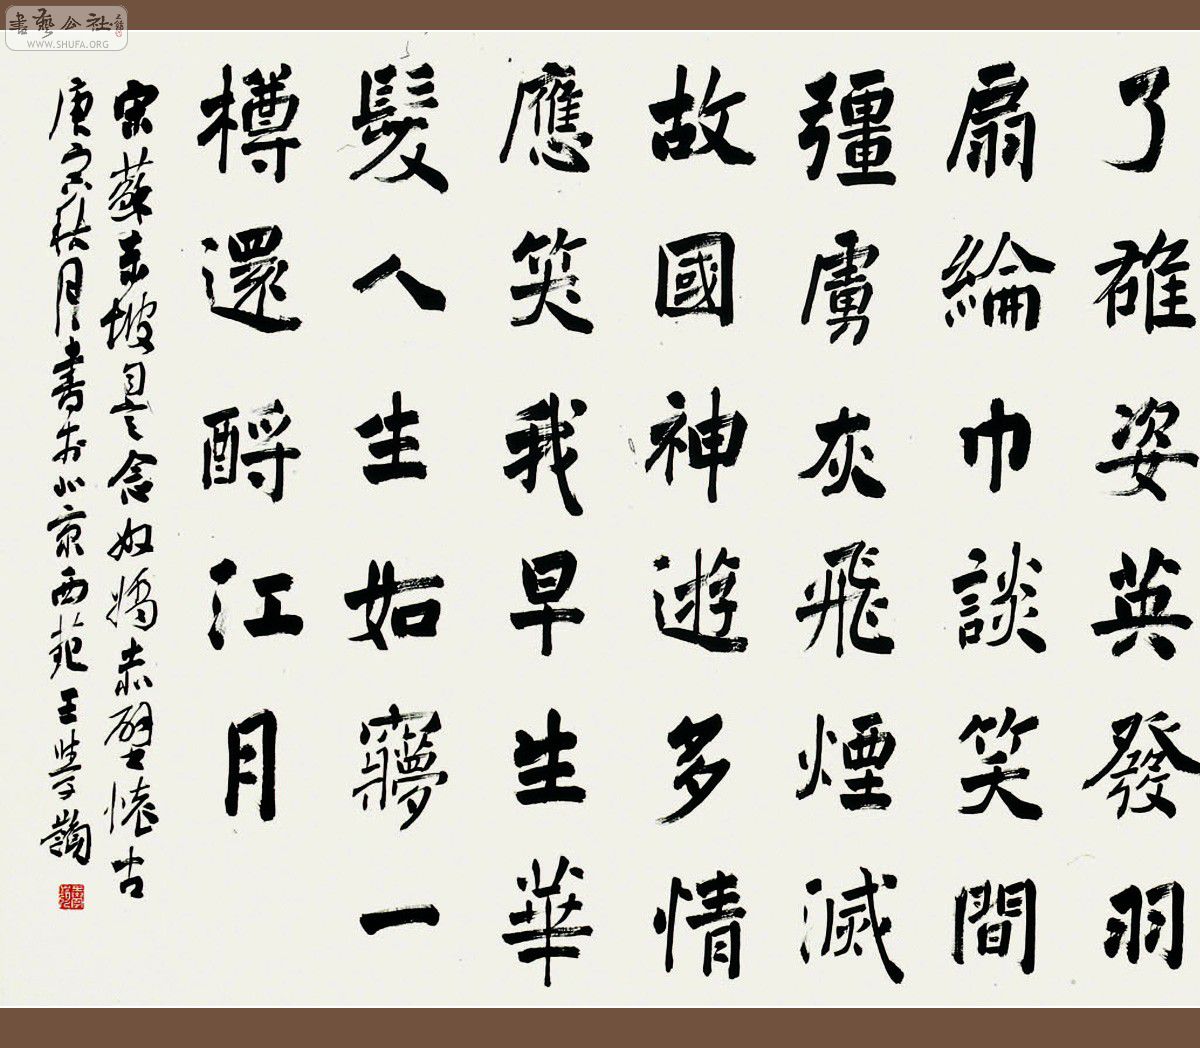 了雄姿英發羽
扇綸巾談笑間
彊虜灰飛煙滅
故國神遊多情
應笑我早生華
髮人生如夢一
樽還酹江月
宋蘇東坡是念奴嬌赤壁懷古
庚寅秋月書於北京西苑王學嶺
書藝公社
WWW.SHUFA.ORG